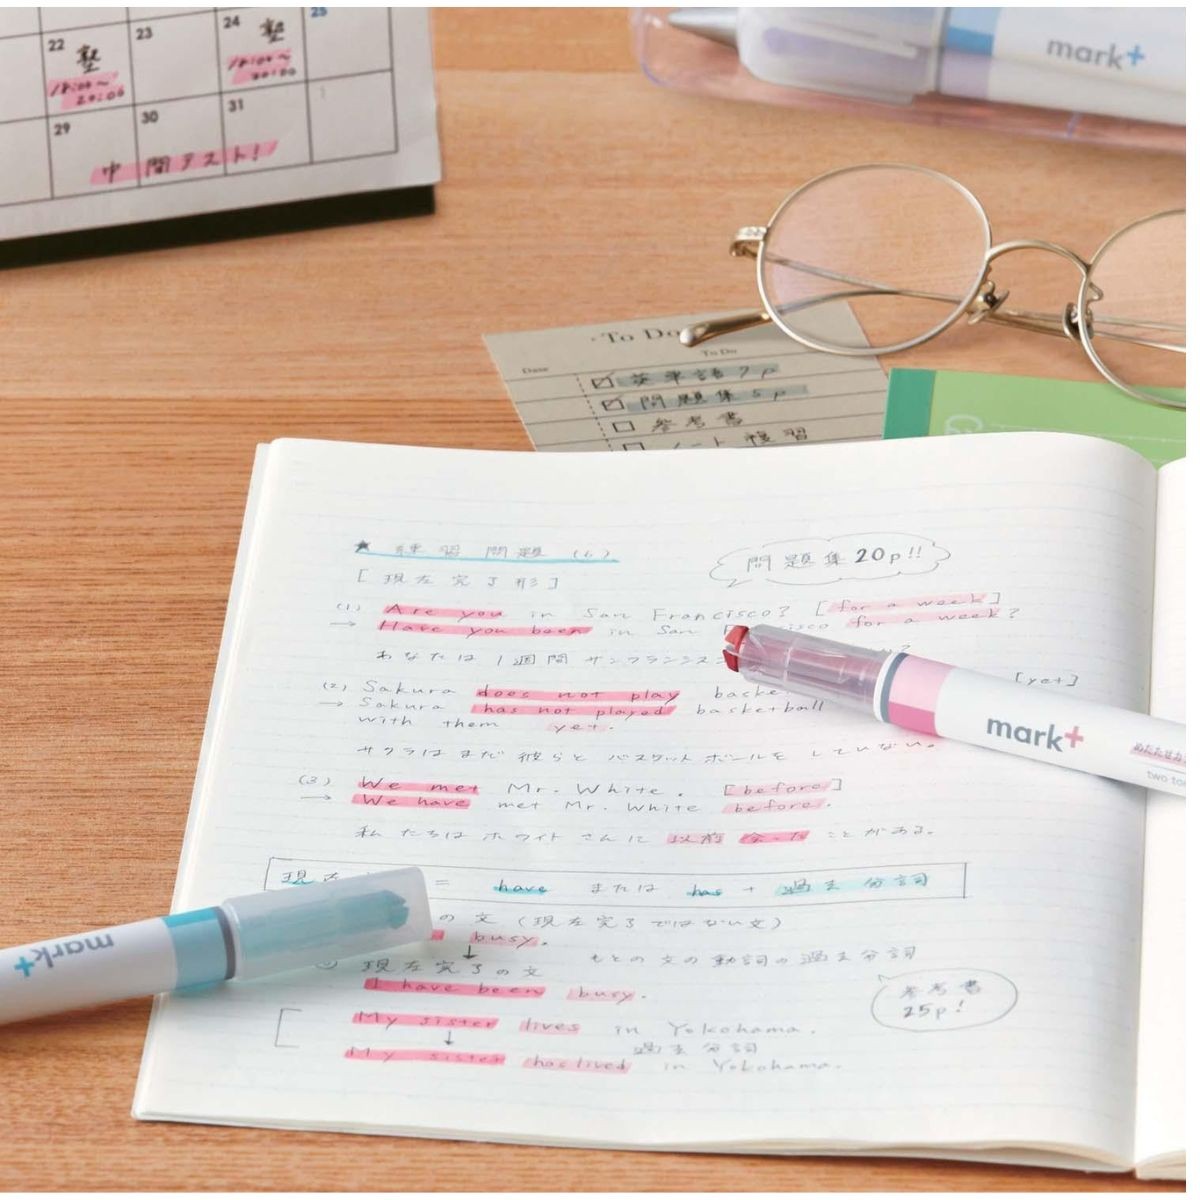 22 塾
23
24 塾
25
18:00〜
20:00
18:00〜
20:00
29
30
31
1
中間テスト!
mark+
To Do
To Do
Date
英単語7p
問題集5p
参考書
ノート復習
★ 練習問題(6)
問題集20p!!
[現在完了形]
(1) Are you in San Francisco? [for a week]
→ Have you been in San Francisco for a week?
あなたは1週間サンフランシス
(2) Sakura does not play baske [yet]
→ Sakura has not played basketball
with them yet.
サクラはまだ彼らとバスケットボールをしていない。
(3) We met Mr. White. [before]
→ We have met Mr. White before.
私たちはホワイトさんに以前会ったことがある。
現在 = have または has + 過去分詞
の文(現在完了ではない文)
busy.
現在完了の文 もとの文の動詞の過去分詞
I have been busy.
参考書
25p!
My sister lives in Yokohama.
過去分詞
My sister has lived in Yokohama.
mark+
めだたせカ
two to
mark+